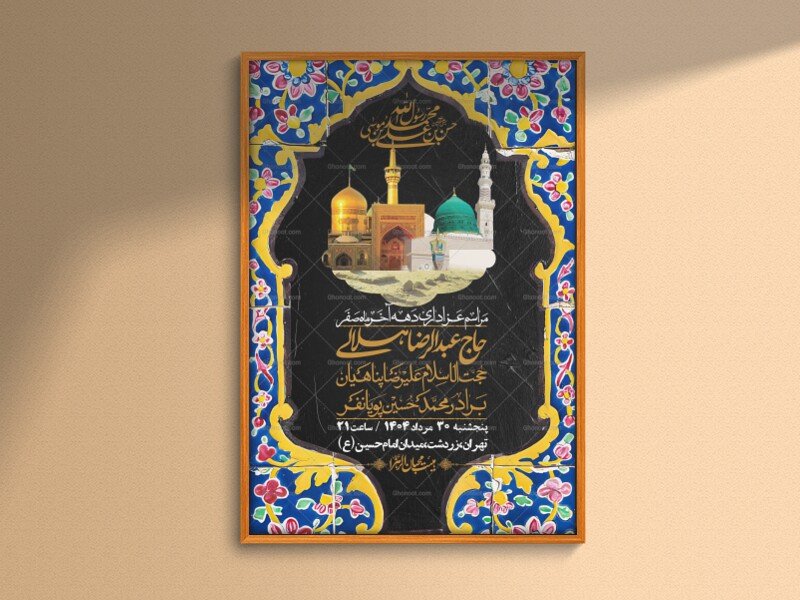 محمد رسول الله
حسن بن علی
علی بن موسی
مراسم عزاداری دهه آخر ماه صفر
حاج عبدالرضا هلالی
حجت الاسلام علیرضا پناهیان
برادر محمدحسین پویانفر
پنجشنبه ۳۰ مرداد ۱۴۰۴ / ساعت ۲۱
تهران،زردشت،میدان امام حسین (ع)
Ghonoot.com